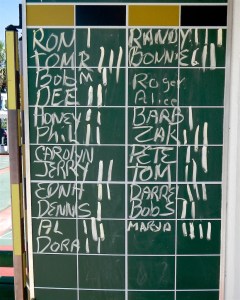 RON
TOM R
BOB M
DEE
HONEY
Phil
CAROLYN
JERRY
EDNA
DENNIS
AL
DORA
RANDY
BONNIE
Roger
Alice
BARB
ZAK
PETE
TOM
DARRE
BOB S
MARYA